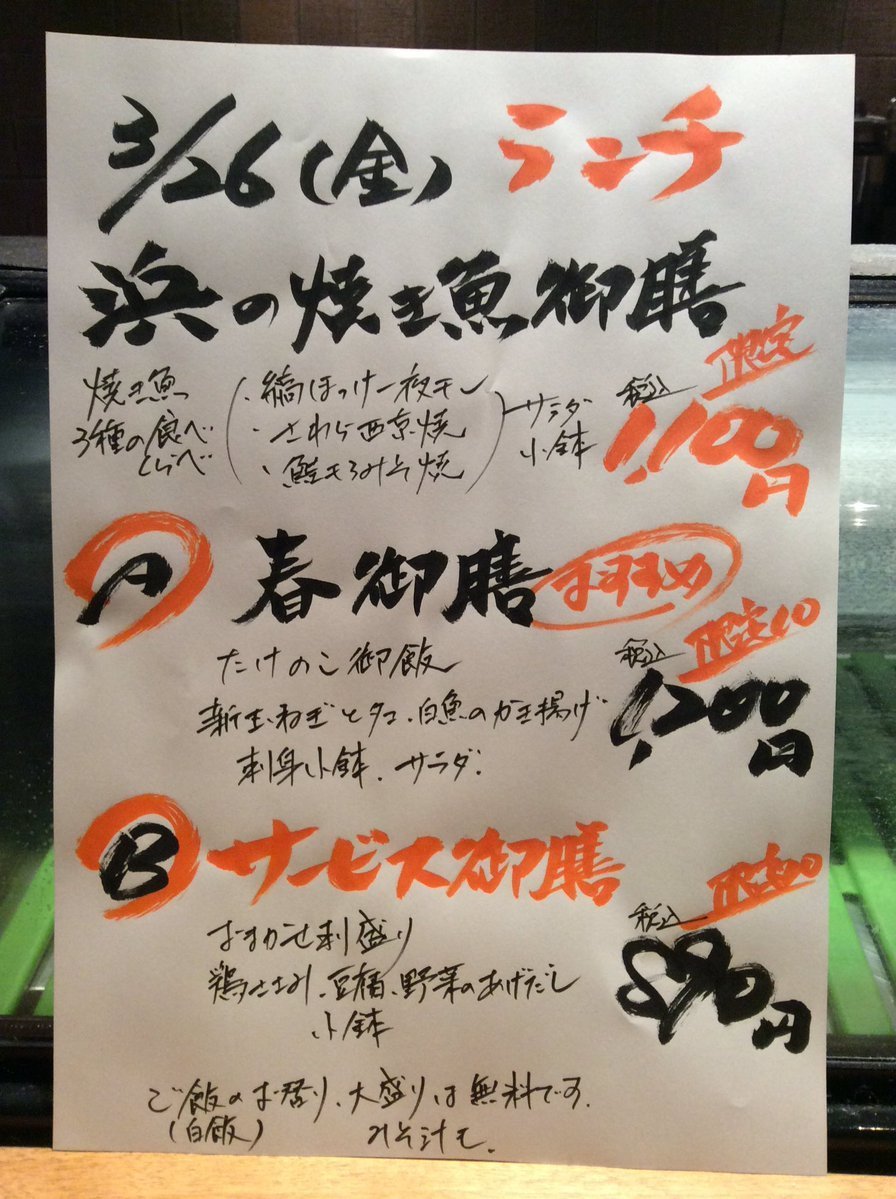 3/26(金) ランチ
浜の焼き魚御膳
限定
焼き魚
3種の食べ
くらべ
・縞ほっけ一夜干し
・さわら西京焼
・鮭もろみそ焼
サラダ
小鉢
税込
1,100円
A 春御膳 おすすめ
限定10
たけのこ御飯
新玉ねぎとタコ、白魚のかき揚げ
刺身小鉢、サラダ、
税込
1,200円
B サービス御膳
おまかせ刺盛り
鶏ささみ、豆腐、野菜のあげだし
小鉢
限定
税込
890円
ご飯のお替り、大盛りは無料です。
(白飯) みそ汁も、